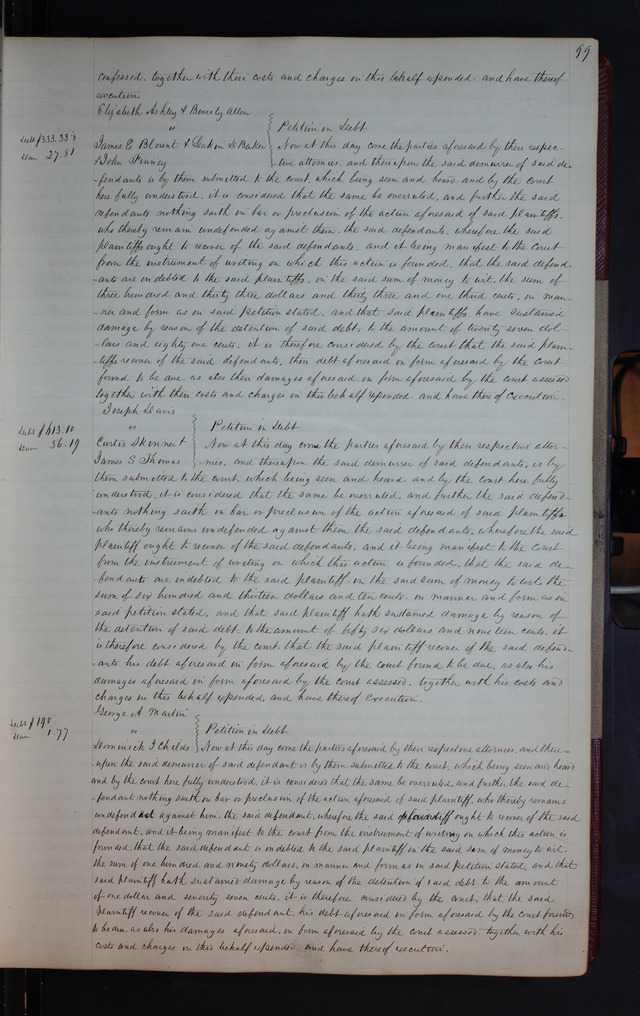 99
confessed. together with their costs and charges in this behalf expended. and have thereof
execution.
Elizabeth Ashley & Beverly Allen
" Petition in Debt
Debt $333.33⅓
Dam 27.81
James E Blount & Deakon Lo Baker Now at this day come the parties aforesaid by their respec-
& John Finney tive attornies. and thereupon the said demurrer of said de-
-fendants is by them submitted to the court, which being seen and heard. and by the court
here fully understood. it is considered that the same be overruled, and further the said
defendants nothing saith in bar or preclusion of the action aforesaid of said plaintiffs.
who thereby remain undefended against them. the said defendants. wherefore the said
plaintiffs ought to recover of the said defendants. and it being manifest to the court
from the instrument of writing on which this action is founded. that the said defend-
-ants are indebted to the said plaintiffs. in the said sum of money to wit. the sum of
three hundred and thirty three dollars and thirty three and one third cents. in man-
-ner and form as in said petition stated. and that said plaintiffs have sustained
damage by reason of the detention of said debt. to the amount of twenty seven dol-
-lars and eighty one cents. it is therefore considered by the court that the said plain-
-tiffs recover of the said defendants, their debt aforesaid in form aforesaid by the court
found to be due as also their damages aforesaid. in form aforesaid by the court assessed
together with their costs and charges in this behalf expended. and have thereof Execution.
Joseph Davis
" Petition in Debt
Debt $613.10
Dam 56.19
Curtis Skinner & Now at this day come the parties aforesaid by their respective attor-
James S Thomas -nies, and thereupon the said demurrer of said defendants, is by
them submitted to the court. which being seen and heard and by the court here fully
understood. it is considered that the same be overruled. and further the said defend-
-ants nothing saith in bar or preclusion of the action aforesaid of said plaintiff
who thereby remains undefended against them the said defendants. wherefore the said
plaintiff ought to recover of the said defendants. and it being manifest to the court
from the instrument of writing on which this action is founded, that the said de-
-fendants are indebted to the said plaintiff in the said sum of money to wit. the
sum of six hundred and thirteen dollars and ten cents. in manner and form as in
said petition stated, and that said plaintiff hath sustained damage by reason of
the detention of said debt. to the amount of fifty six dollars and nineteen cents. it
is therefore considered by the court. that the said plaintiff recover of the said defend-
-ants his debt aforesaid in form aforesaid by the court found to be due, as also his
damages aforesaid in form aforesaid by the court assessed. together with his costs and
charges in this behalf expended, and have thereof Execution.
George A. Martin
" Petition in Debt
Debt $190
Dam 1.77
Dominick I Childs Now at this day come the parties aforesaid by their respective attornies, and there-
-upon the said demurrer of said defendant is by them submitted to the court, which being seen and heard
and by the court here fully understood, it is considered that the same be overruled, and further the said de-
-fendant nothing saith in bar or preclusion of the action aforesaid of said plaintiff. who thereby remains
undefended against him. the said defendant, wherefore the said plaintiff ought to recover of the said
defendant. and it being manifest to the court from the instrument of writing on which this action is
founded. that the said defendant is indebted to the said plaintiff in the said sum of money to wit.
the sum of one hundred and ninety dollars, in manner and form as in said petition stated, and that
said plaintiff hath sustained damage by reason of the detention of said debt. to the amount
of one dollar and seventy seven cents. it is therefore considered by the court, that the said
plaintiff recover of the said defendant. his debt aforesaid in form aforesaid by the court found
to be due. as also his damages aforesaid, in form aforesaid by the court assessed. together with his
costs and charges in this behalf expended. and have thereof execution.